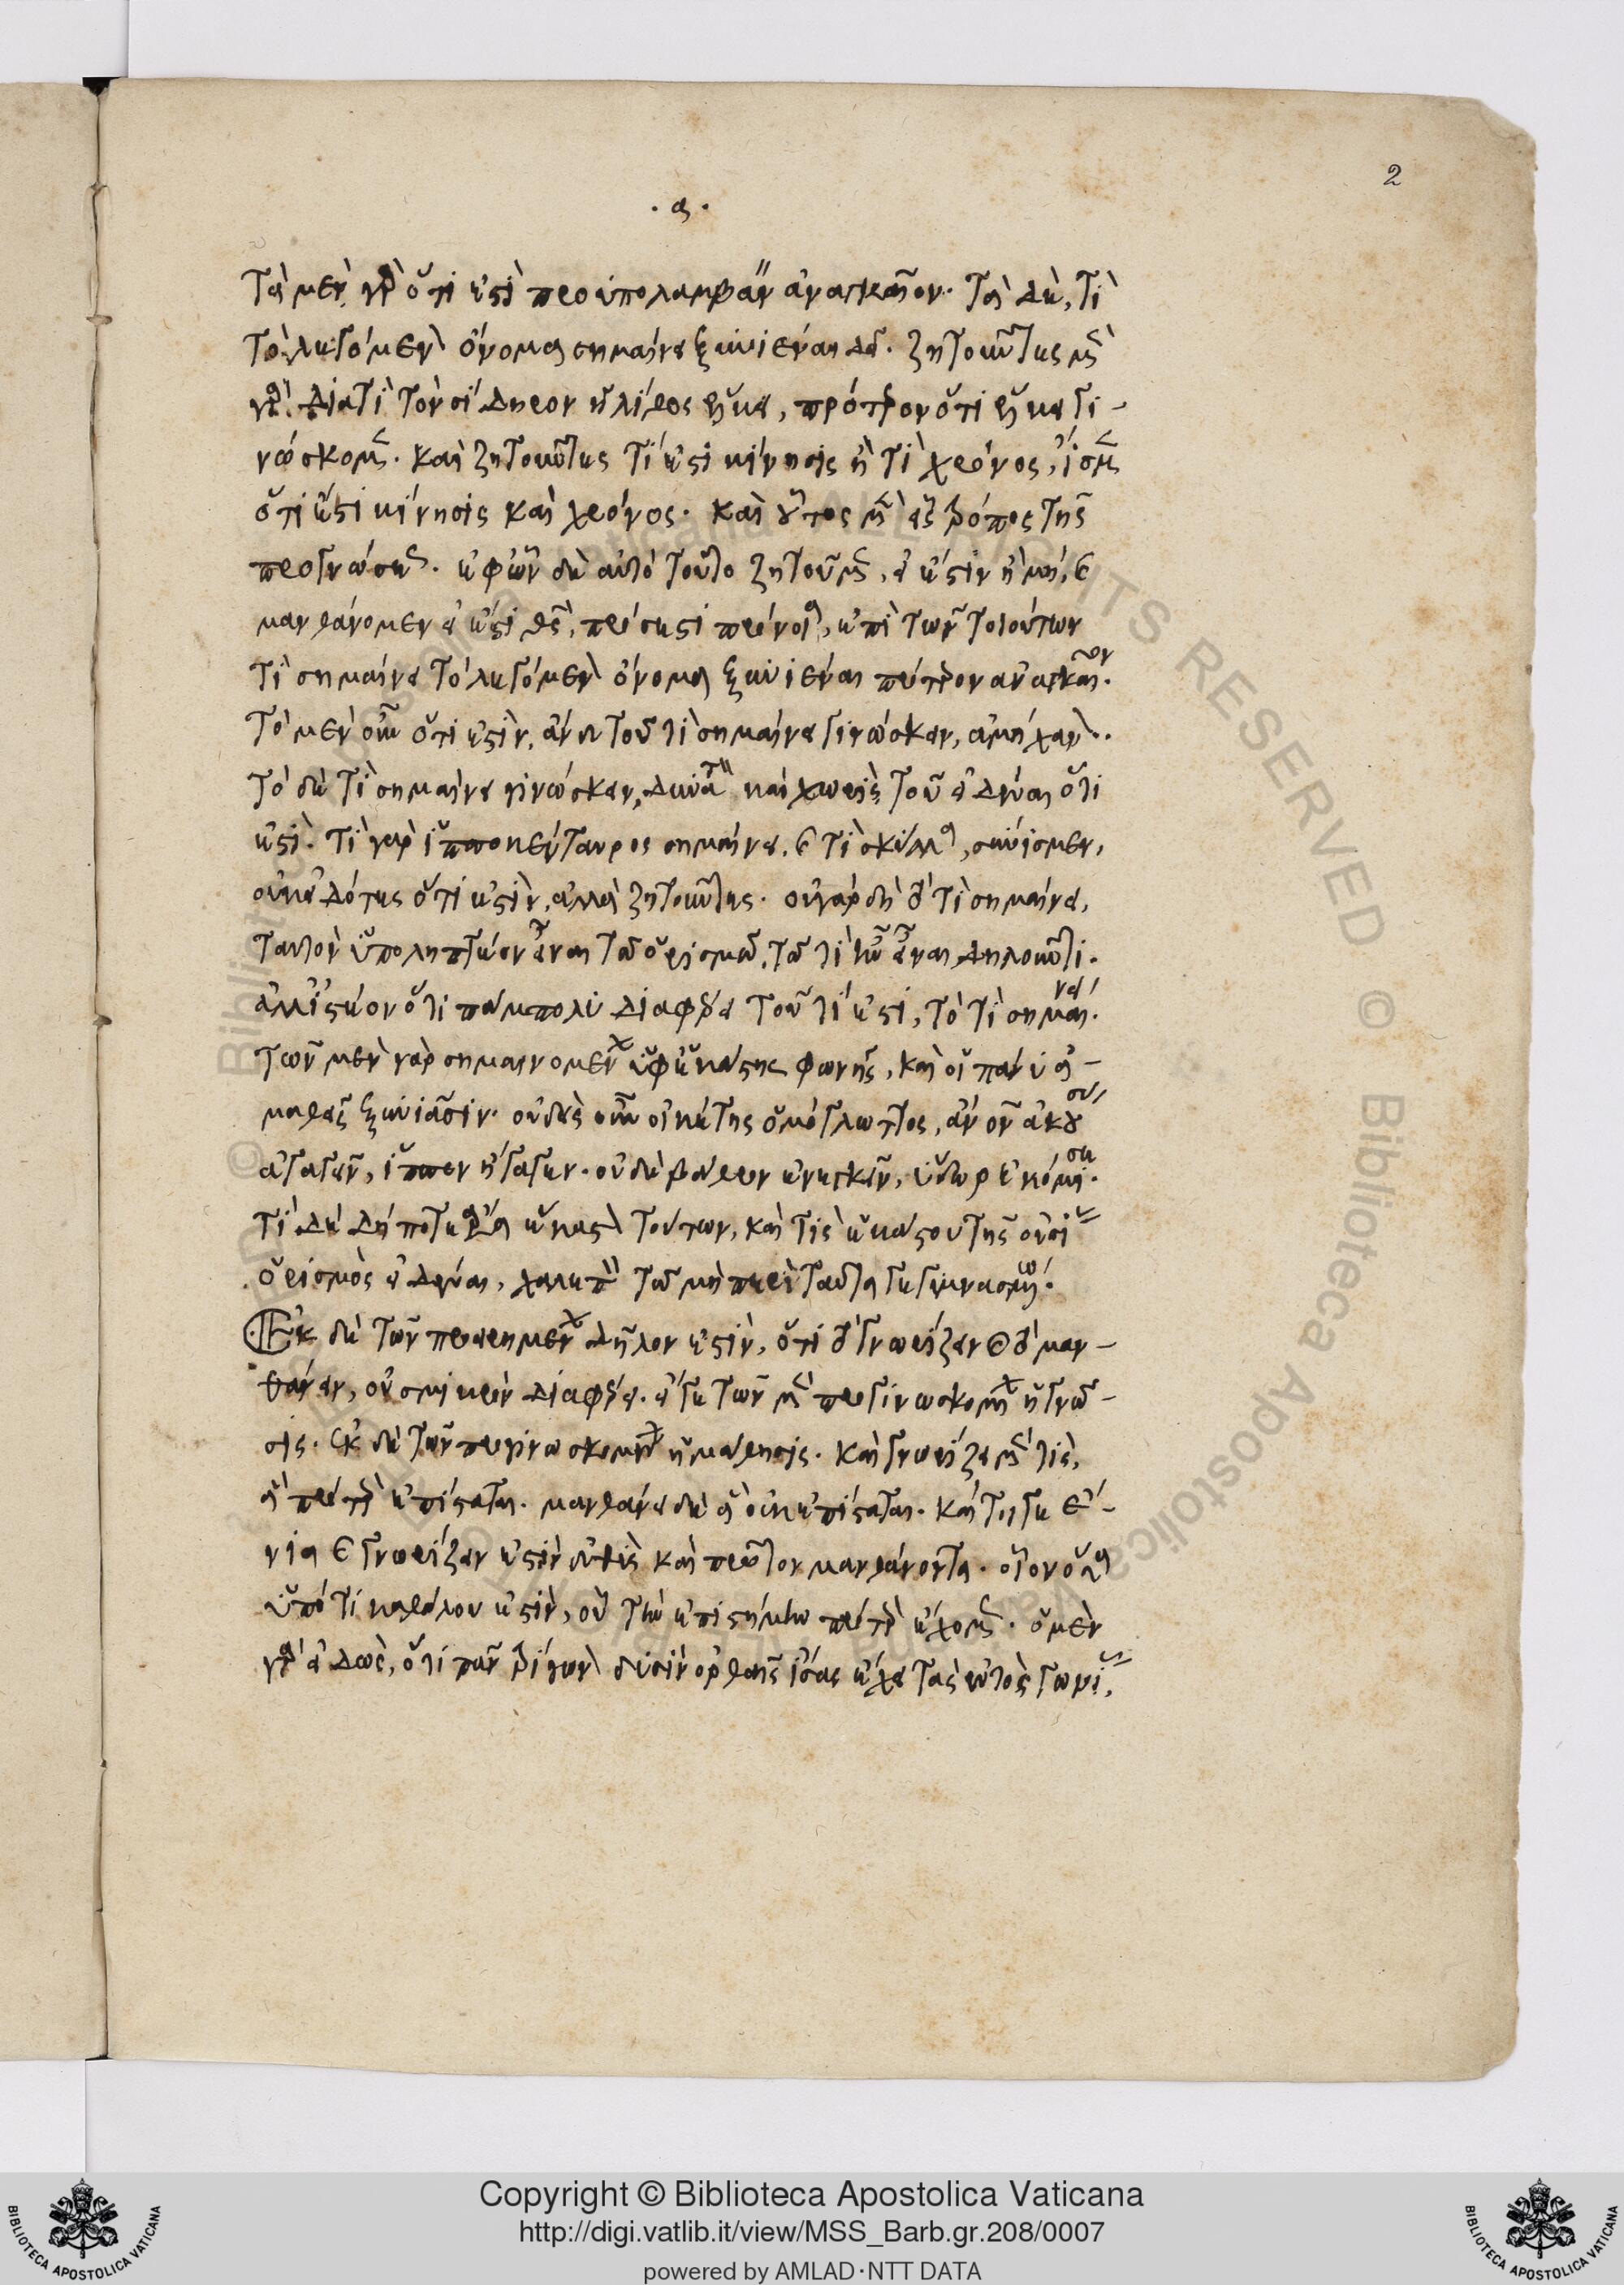 2
· α ·
τὰ μὲν γὰρ ὅτι ἐστὶ προϋπολαμβάνειν ἀναγκαῖον. τὰ δὲ, τί
τὸ λεγόμενον ὄνομα σημαίνει ξυνιέναι δεῖ. ζητοῦντες μὲν
γὰρ διατί τὸν σίδηρον ἡ λίθος ἕλκει, πρότερον ὅτι ἕλκει γι-
νώσκομεν. καὶ ζητοῦντες τί ἐστι κίνησις ἢ τί χρόνος, ἴσμεν
ὅτι ἔστι κίνησις καὶ χρόνος. καὶ οὗτος μὲν εἷς τρόπος τῆς
προγνώσεως. ἐφ' ὧν δὲ αὐτὸ τοῦτο ζητοῦμεν, εἰ ἔστιν ἢ μή, καὶ
μανθάνομεν εἰ ἔστι θεὸς, πρόσεστι πρόνοια, ἐπὶ τῶν τοιούτων
τί σημαίνει τὸ λεγόμενον ὄνομα ξυνιέναι πρότερον ἀναγκαῖον.
τὸ μὲν οὖν ὅτι ἐστὶν, ἄνευ τοῦ τί σημαίνει γινώσκειν, ἀμήχανον.
τὸ δὲ τί σημαίνει γινώσκειν, δυνατὸν καὶ χωρὶς τοῦ εἰδέναι ὅτι
ἐστί. τί γὰρ ἱπποκένταυρος σημαίνει, καὶ τί σκύλλα, συνίσμεν,
οὐκ εἰδότες ὅτι ἐστὶν, ἀλλὰ ζητοῦντες. οὐ γὰρ δὴ τὸ τί σημαίνει,
ταυτὸν ὑποληπτέον εἶναι τῷ ὁρισμῷ, τῷ τί ἦν εἶναι δηλοῦντι.
ἀλλ' ἰστέον ὅτι πάμπολυ διαφέρει τοῦ τί ἐστι, τὸ τί σημαίνει.
τῶν μὲν γὰρ σημαινομένων ὑφ' ἑκάστης φωνῆς, καὶ οἱ πάνυ ἀ-
μαθεῖς ξυνιᾶσιν. οὐδεὶς οὖν οἰκέτης ὁμόγλωττος, ἂν ὂν ἀκούσῃ
ἀγαγεῖν, ἵππον ἤγαγεν. οὐδὲ βάθρον ἐνεγκεῖν, ὕδωρ ἐκόμισε.
τί δὲ δήποτέ ἐστιν ἕκαστον τούτων, καὶ τίς ἑκάστου τῆς οὐσίας
ὁρισμὸς εἰδέναι, χαλεπὸν τῷ μὴ περὶ ταῦτα γεγυμνασμένῳ.
Ἐκ δὲ τῶν προειρημένων δῆλον ἐστὶν, ὅτι τὸ γνωρίζειν καὶ τὸ μαν-
θάνειν, οὐ σμικρὸν διαφέρει. εἴγε τῶν μὲν προγινωσκομένων ἡ γνῶ-
σις. ἐκ δὲ τῶν προγινωσκομένων ἡ μάθησις. καὶ γνωρίζει μὲν τὶς,
ἃ πρότερον ἐπίσταται. μανθάνει δὲ ἃ οὐκ ἐπίσταται. καί τοι γε ἔ-
νια καὶ γνωρίζειν ἐστὶν εὐθὺς καὶ πρῶτον μανθάνοντα. οἷον ὅσα
ὑπό τι καθόλου ἐστὶν, οὗ τὴν ἐπιστήμην πρότερον ἔχομεν. ὁ μὲν
γὰρ εἰδὼς, ὅτι πᾶν τρίγωνον δυσὶν ὀρθαῖς ἴσας ἔχει τὰς ἐντὸς γωνίας,
Copyright © Biblioteca Apostolica Vaticana
http://digi.vatlib.it/view/MSS_Barb.gr.208/0007
powered by AMLAD·NTT DATA